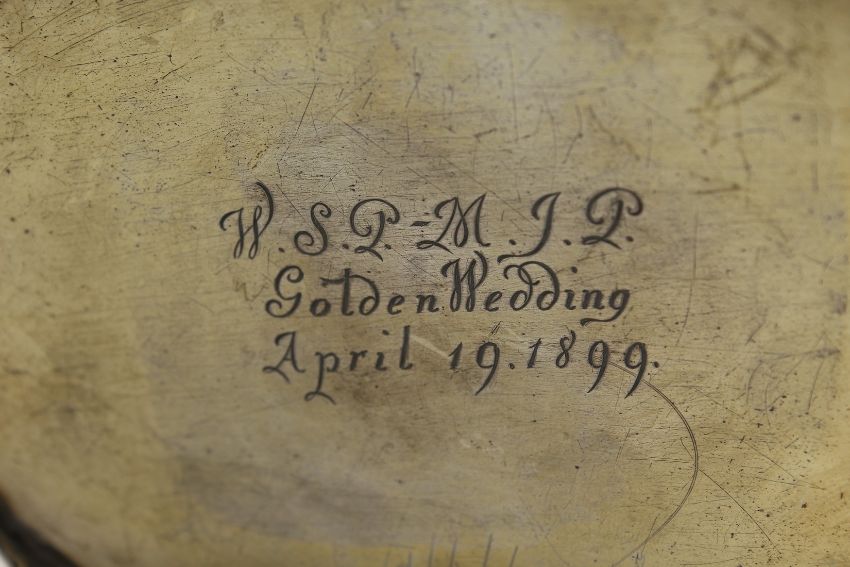 W.S.P.-M.J.P.
Golden Wedding
April 19.1899.